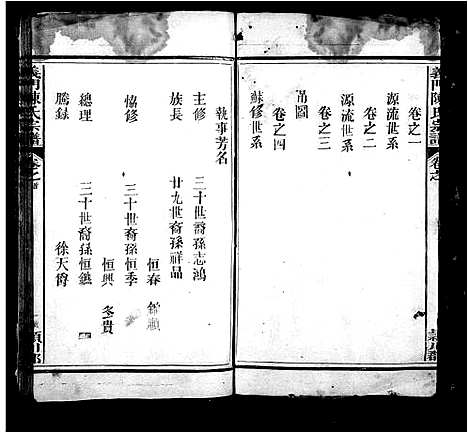 義門陳氏宗譜
卷之一
源流世系
卷之二
源流世系
卷之三
吊圖
卷之四
蘇修世系
執事芳名
主修 三十世裔孫志鴻
族長 廿九世裔孫祥品
恒春
協修 三十世裔孫恒季
恒興 冬貴
總理 三十世裔孫恒鑣
謄錄 徐天爵
義門陳氏宗譜
潁川郡